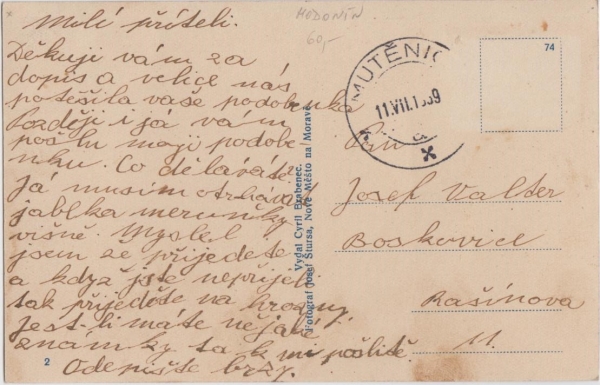 Milí příteli.
Děkuji vám za
dopis a velice nás
potěšila vaše podobenka
Později i já vám
pošlu moji podobe
nku. Co děláváte
Já musím otrhávat
jablka meruňky
višně. Myslel
jsem že přijedete
a když jste nepřijeli
tak přijedete na hrozny.
Jest-li máte nejaké
známky tak mi pošlitě
Odepište brzy.
2
HODONÍN
60,-
MUTĚNIC
11.VII.1939
74
Vydal Cyril Brabenec.
Fotograf Josef Štursa, Nové Město na Moravě.
Pan
Josef Valter
Boskovice
Rašínova
11.